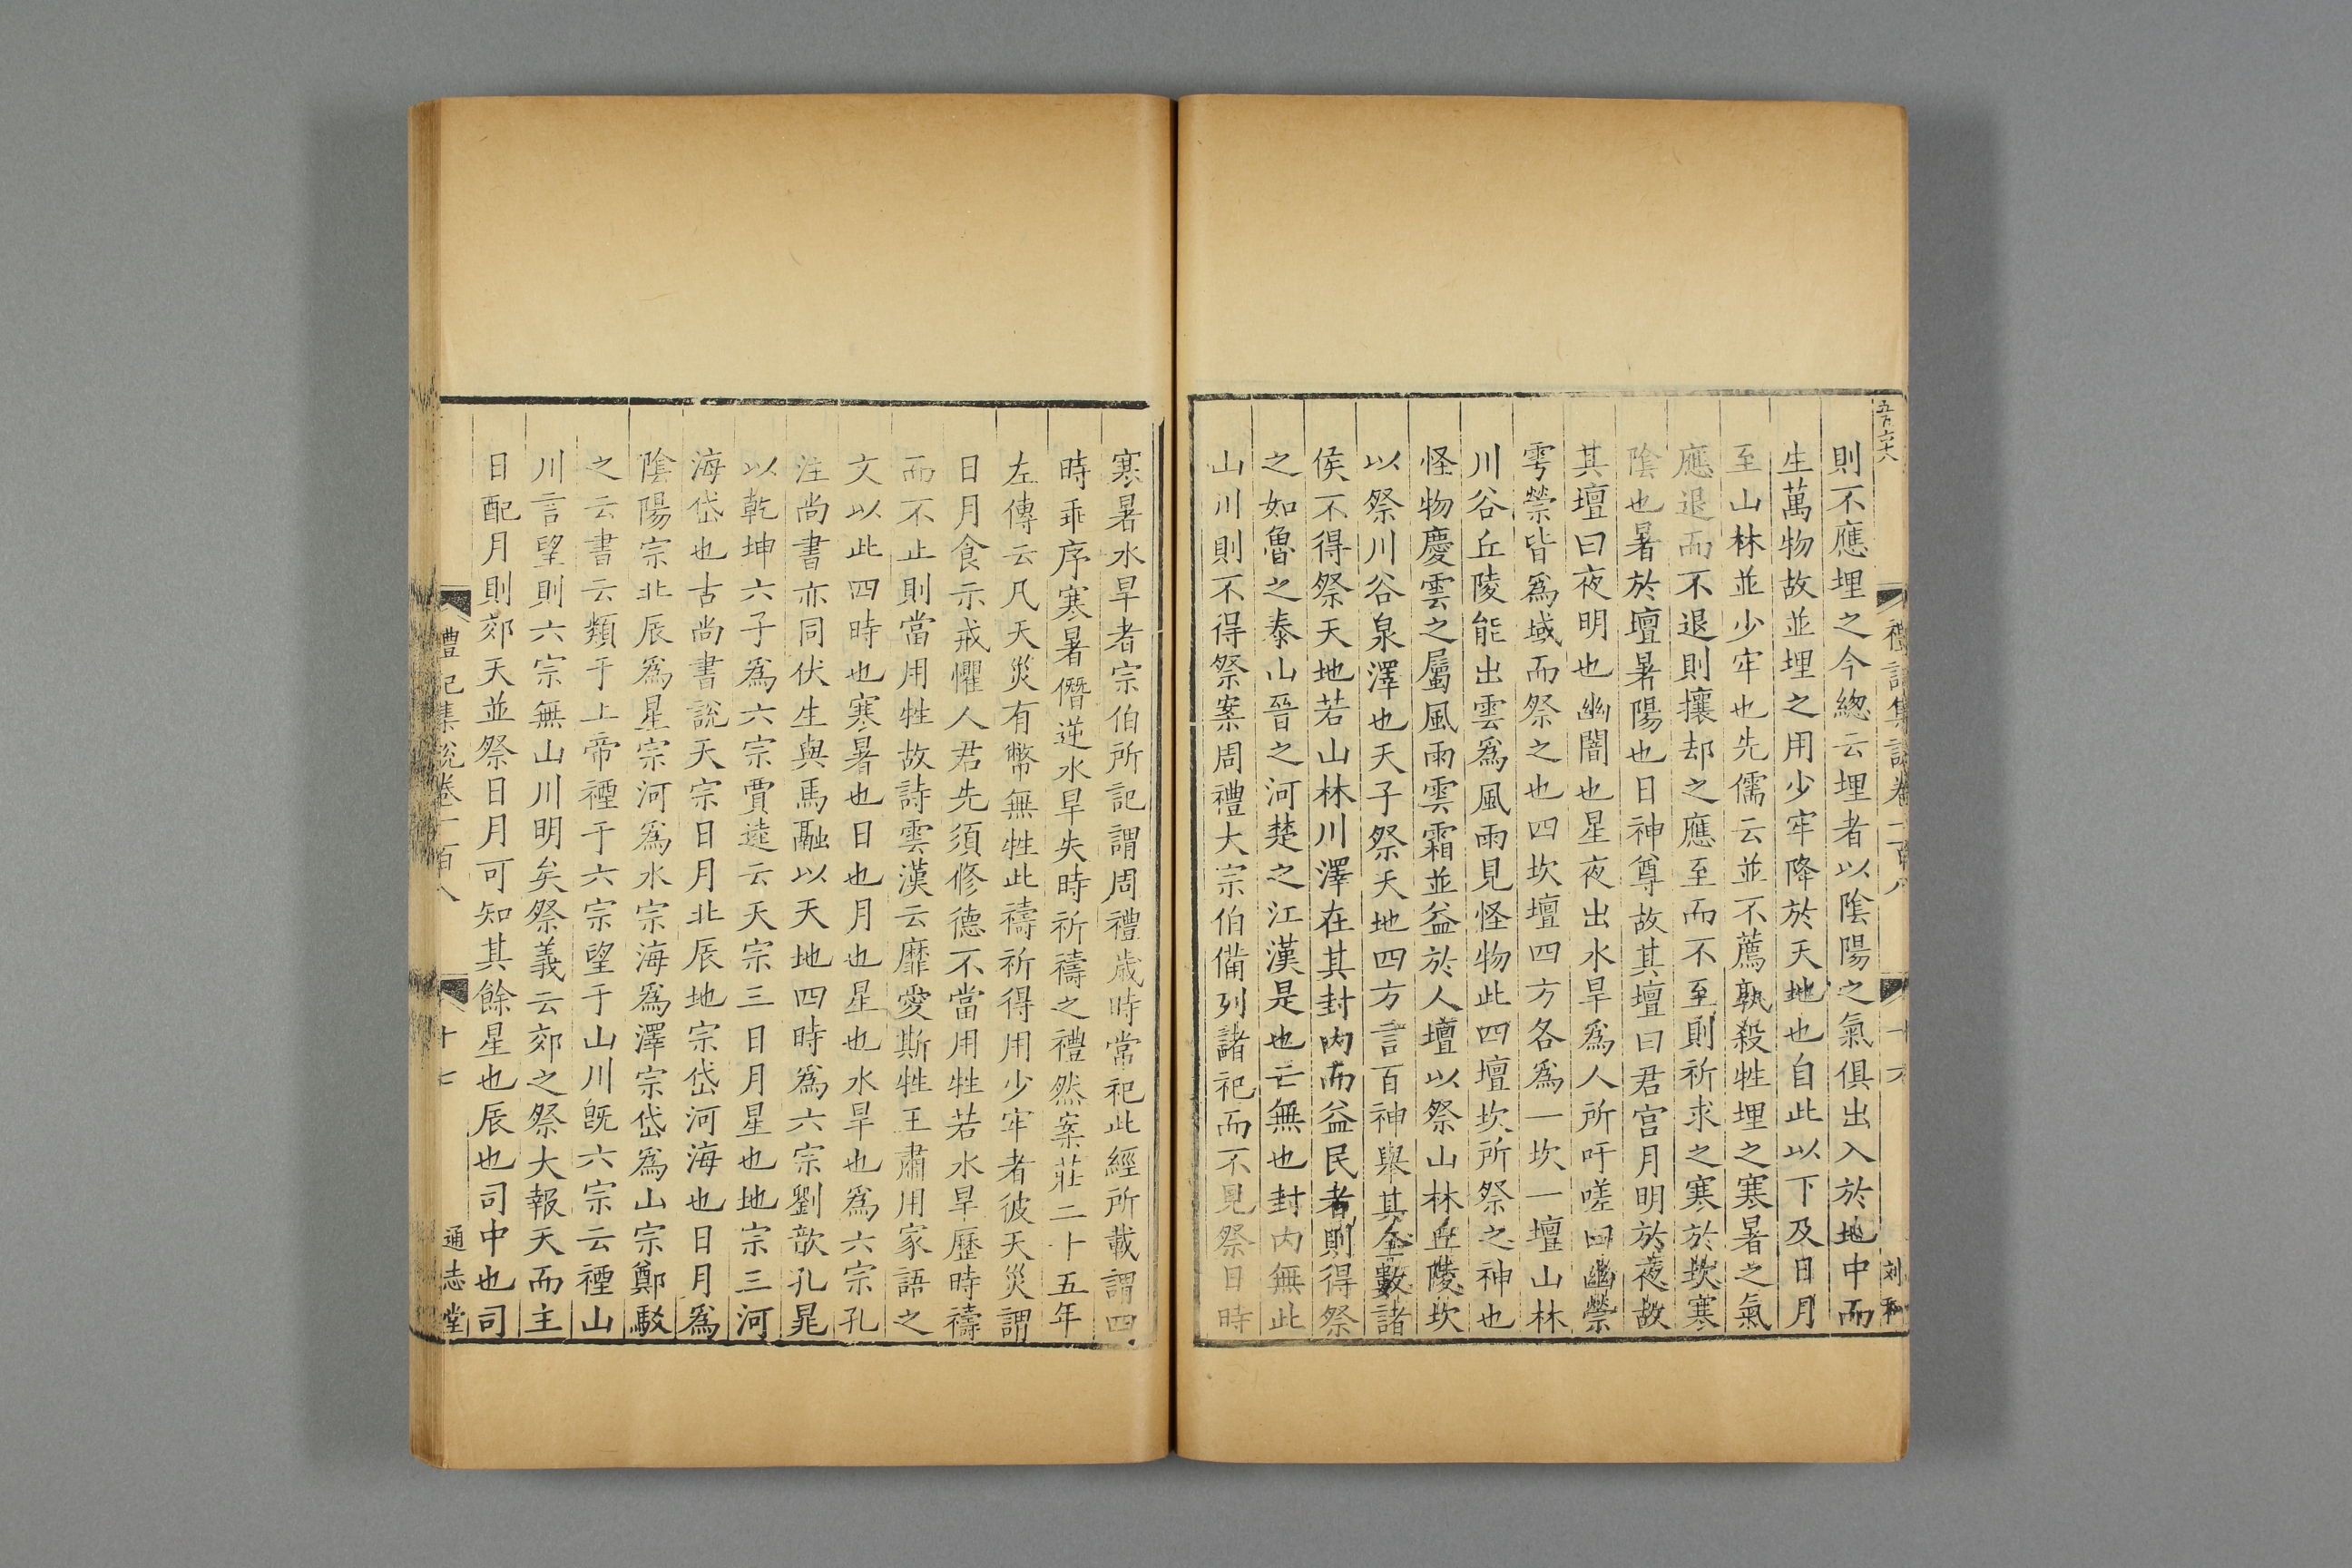 五百六十八
禮記集說卷一百八
十六
刘和
則不應埋之今緫云埋者以陰陽之氣俱出入於地中而
生萬物故並埋之用少牢降於天地也自此以下及日月
至山林並少牢也先儒云並不薦孰殺牲埋之寒暑之氣
應退而不退則攘却之應至而不至則祈求之寒於坎寒
陰也暑於壇暑陽也日神尊故其壇曰君宫月明於夜故
其壇曰夜明也幽闇也星夜出水旱爲人所吁嗟曰幽禜
雩禜皆爲域而祭之也四坎壇四方各爲一坎一壇山林
川谷丘陵能出雲爲風雨見怪物此四壇坎所祭之神也
怪物慶雲之屬風雨雲霜並益於人壇以祭山林丘陵坎
以祭川谷泉澤也天子祭天地四方言百神舉其全數諸
侯不得祭天地若山林川澤在其封内而益民者則得祭
之如魯之泰山晉之河楚之江漢是也亡無也封内無此
山川則不得祭案周禮大宗伯備列諸祀而不見祭日時
寒暑水旱者宗伯所記謂周禮歲時常祀此經所載謂四
時乖序寒暑僭逆水旱失時祈禱之禮然案莊二十五年
左傳云凡天災有幣無牲此禱祈得用少牢者彼天災謂
日月食示戒懼人君先須修德不當用牲若水旱歷時禱
而不止則當用牲故詩雲漢云靡愛斯牲王肅用家語之
文以此四時也寒暑也日也月也星也水旱也爲六宗孔
注尚書亦同伏生與馬融以天地四時爲六宗劉歆孔晁
以乾坤六子爲六宗賈逵云天宗三日月星也地宗三河
海岱也古尚書說天宗日月北辰地宗岱河海也日月爲
陰陽宗北辰爲星宗河爲水宗海爲澤宗岱爲山宗鄭駁
之云書云類于上帝禋于六宗望于山川旣六宗云禋山
川言望則六宗無山川明矣祭義云郊之祭大報天而主
日配月則郊天並祭日月可知其餘星也辰也司中也司
禮記集說卷一百八
十七
通志堂